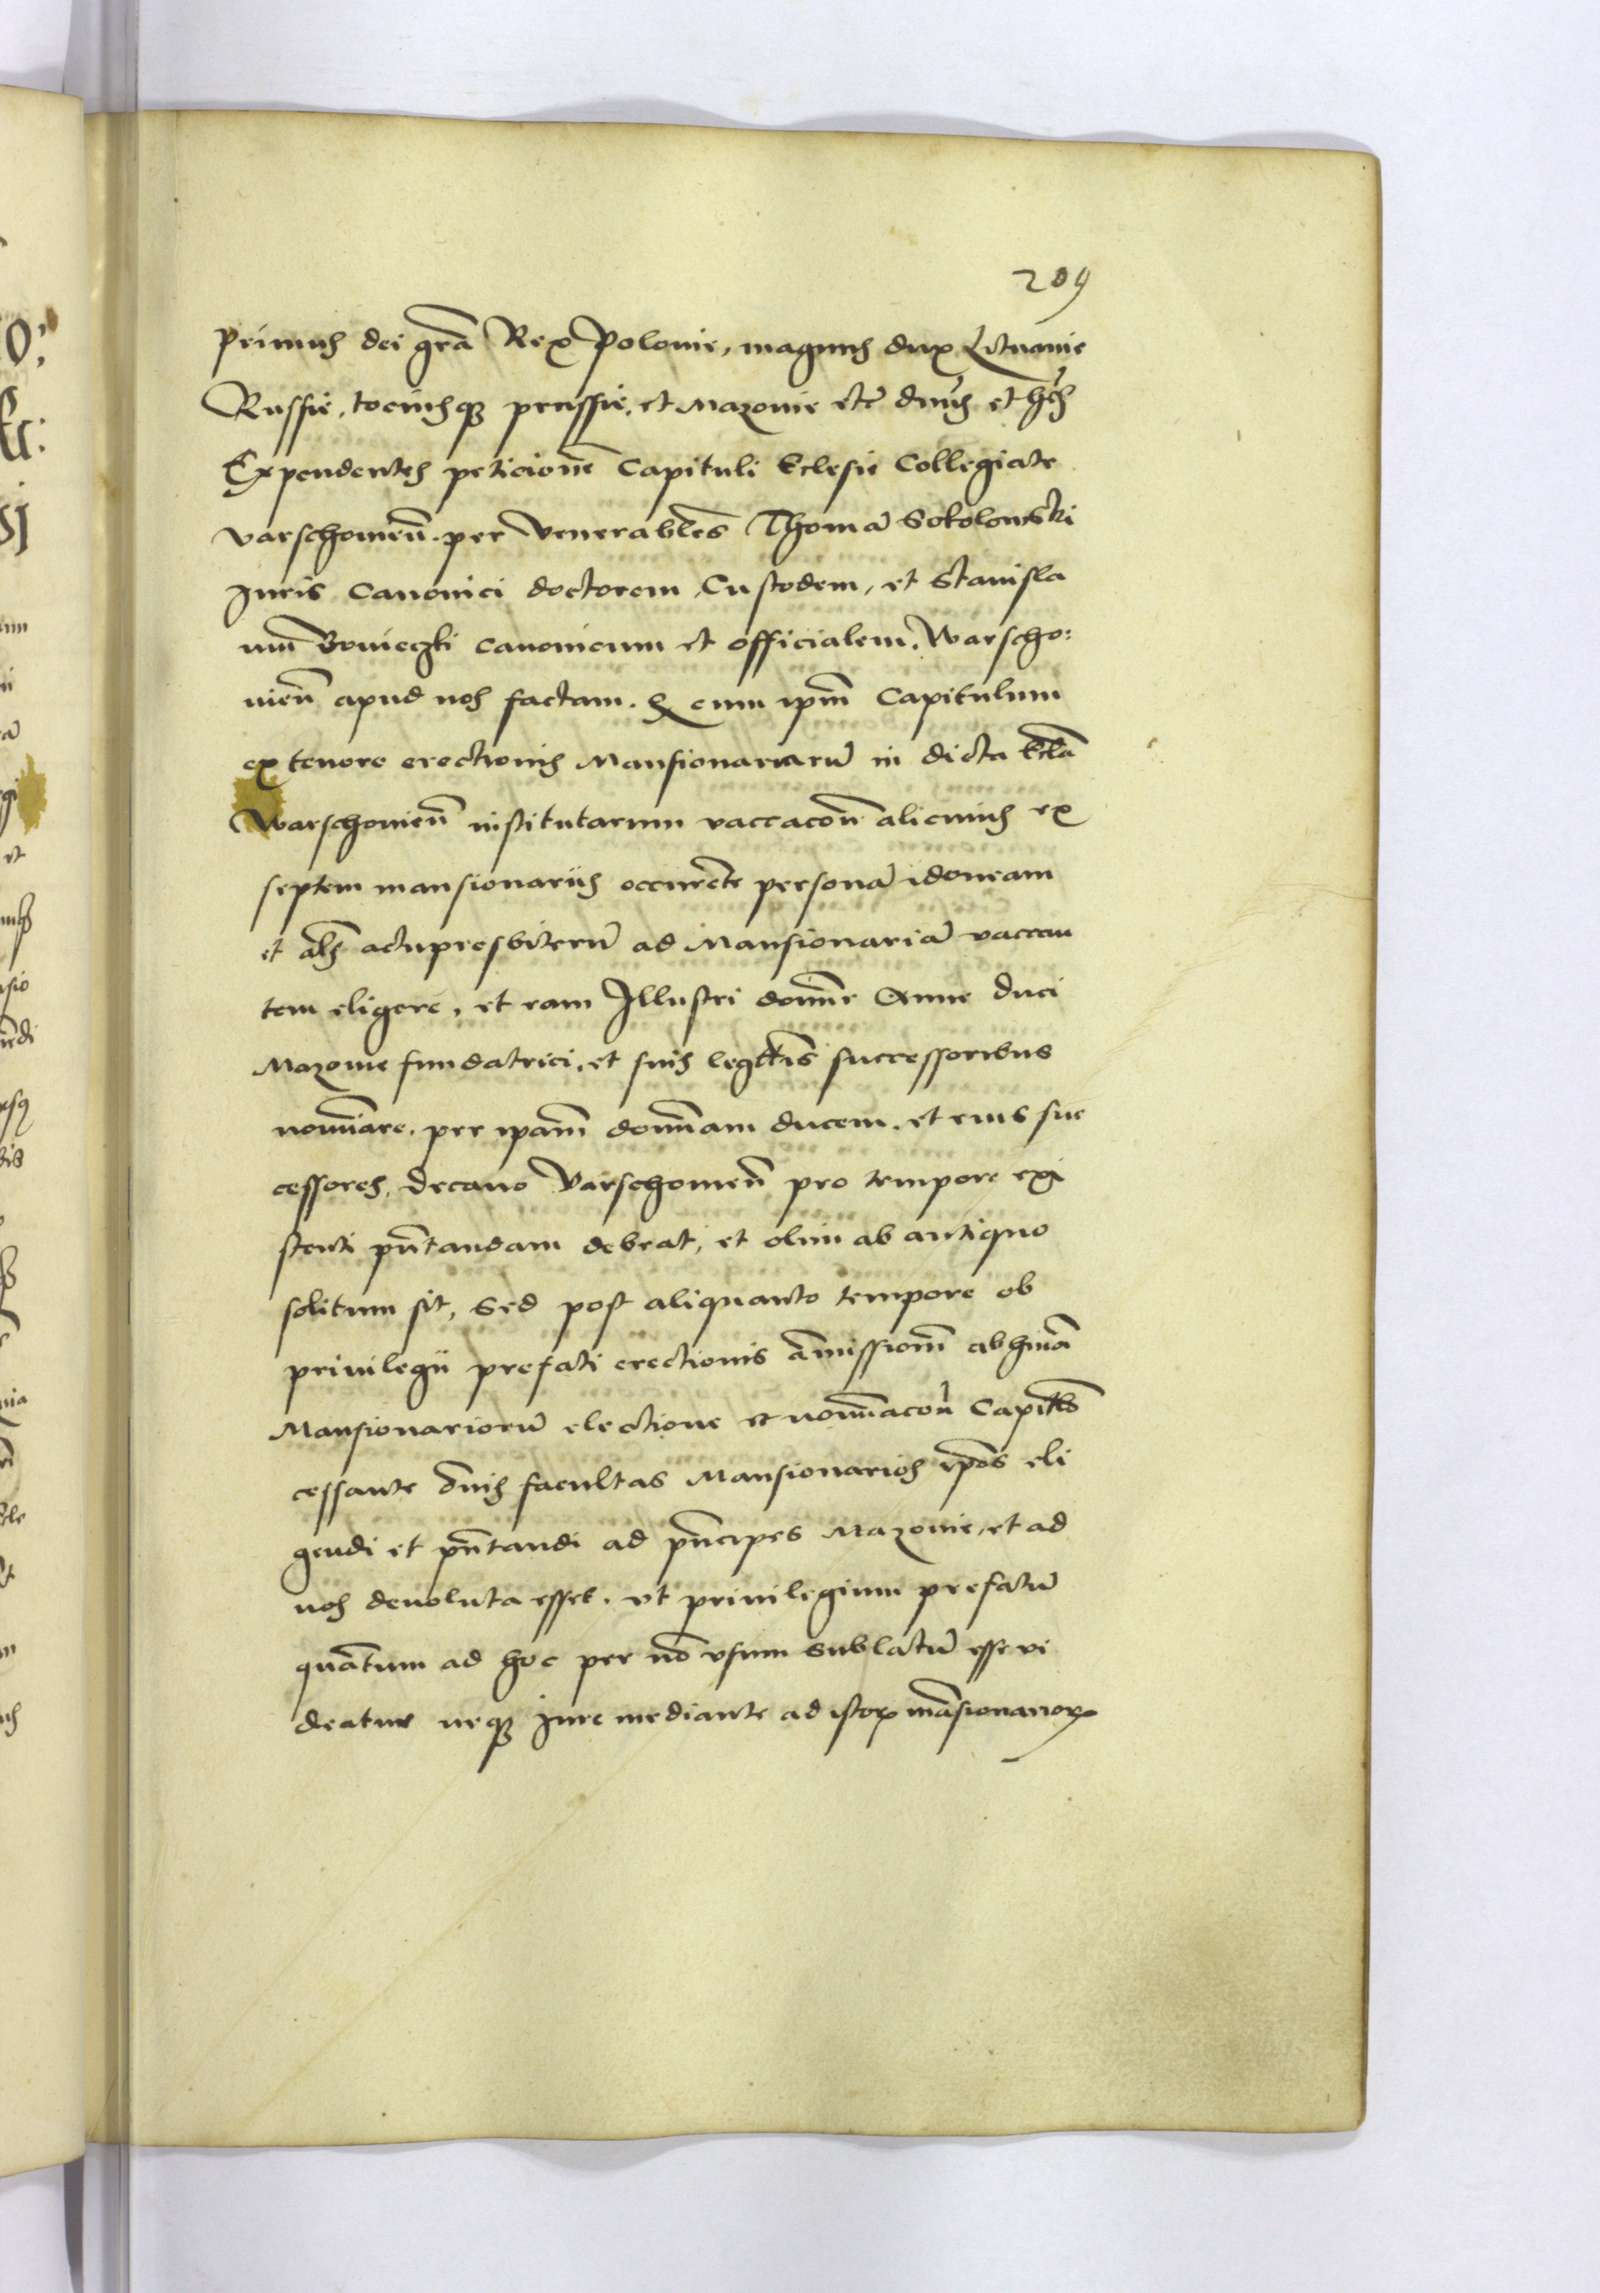 209
Primus dei grã Rex Polonie, magnus dux Lituanie
Russie, tociusq3 prussie, et Mazouie etc̃ dñus et hẽs
Expendentes peticionẽ Capituli Eclesie Collegiate
varschouieñ. per Venerabiles Thomã Sokolowski
Juris Canonici doctorem Custodem, et Stanisla
um Bouieczki canonicum et officialem. Warscho:
uieñ apud nos factam. Q cum ipm̃ Capitulum
ex tenore erectionis Mansionariarũ in dicta Ecclã
Warschouieñ institutarum vaccacoñ alicuius ex
septem mansionariis occurẽte personã idoneam
et als̃ actupresbiterũ ad Mansionariã vaccan
tem eligere, et eam Illustri domiñe Anne duci
Mazouie fundatrici, et suis legittĩs successoribus
nomĩare. per ipam̃ domĩam ducem. et eius suc
cessores, decano Varschouieñ pro tempore exi
stenti pñtandam debeat, et olim ab antiquo
solitum sit, Sed post aliquanto tempore ob
priuilegii prefati erectionis ãmissionẽ abhmõi
Mansionariorũ electione et nomĩacoñ Capitlõ
cessante õnis facultas Mansionarios ipõs eli
gendi et pñtandi ad prĩcipes Mazouie, et ad
nos deuoluta esset. vt priuilegium prefatũ
quãtum ad hoc per nõ vsum sublatũ esse vi
deatur neq3 Jure mediante ad istoꝝ mãsionarioꝝ